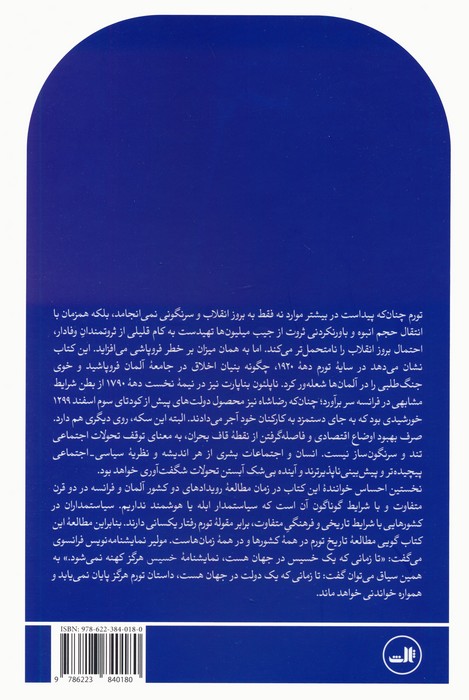 تورم چنان‌که پیداست در بیشتر موارد نه فقط به بروز انقلاب و سرنگونی نمی‌انجامد، بلکه همزمان با
انتقال حجم انبوه و باورنکردنی ثروت از جیب میلیون‌ها تهیدست به کام قلیلی از ثروتمندانِ وفادار،
احتمال بروز انقلاب را نامتحمل‌تر می‌کند. اما به همان میزان بر خطر فروپاشی می‌افزاید. این کتاب
نشان می‌دهد در سایهٔ تورم دههٔ ۱۹۲۰، چگونه بنیان اخلاق در جامعهٔ آلمان فروپاشید و خوی
جنگ‌طلبی را در آلمان‌ها شعله‌ور کرد. ناپلئون بناپارت نیز در نیمهٔ نخست دههٔ ۱۷۹۰ از بطن شرایط
مشابهی در فرانسه سر برآورد؛ چنان‌که رضاشاه نیز محصول دولت‌های پیش از کودتای سوم اسفند ۱۲۹۹
خورشیدی بود که به جای دستمزد به کارکنان خود آجر می‌دادند. البته این سکه، روی دیگری هم دارد.
صرف بهبود اوضاع اقتصادی و فاصله‌گرفتن از نقطهٔ قاف بحران، به معنای توقف تحولات اجتماعی
تند و سرنگون‌ساز نیست. انسان و اجتماعات بشری از هر اندیشه و نظریهٔ سیاسی-اجتماعی
پیچیده‌تر و پیش‌بینی‌ناپذیرترند و آینده بی‌شک آبستن تحولات شگفت‌آوری خواهد بود.
نخستین احساس خوانندهٔ این کتاب در زمان مطالعهٔ رویدادهای دو کشور آلمان و فرانسه در دو قرن
متفاوت و با شرایط گوناگون آن است که سیاستمدار ابله یا هوشمند نداریم. سیاستمداران در
کشورهایی با شرایط تاریخی و فرهنگیِ متفاوت، برابر مقولهٔ تورم رفتار یکسانی دارند. بنابراین مطالعهٔ این
کتاب گویی مطالعهٔ تاریخ تورم در همهٔ کشورها و در همهٔ زمان‌هاست. مولیر نمایشنامه‌نویس فرانسوی
می‌گفت: «تا زمانی که یک خسیس در جهان هست، نمایشنامهٔ خسیس هرگز کهنه نمی‌شود.» به
همین سیاق می‌توان گفت: تا زمانی که یک دولت در جهان هست، داستان تورم هرگز پایان نمی‌یابد و
همواره خواندنی خواهد ماند.
ISBN: 978-622-384-018-0
9 786223 840180
ثالث